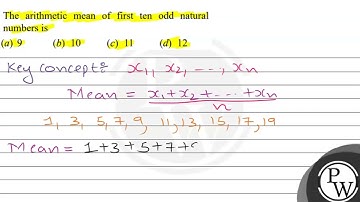 The arithmetic mean of first ten odd natural
numbers is
(a) 9 (b) 10 (c) 11 (d) 12
Key concept:- x₁, x₂, ..., xn
Mean = x₁+x₂+...+xn
n
1, 3, 5, 7, 9, 11, 13, 15, 17, 19
Mean = 1+3+5+7+9
PW